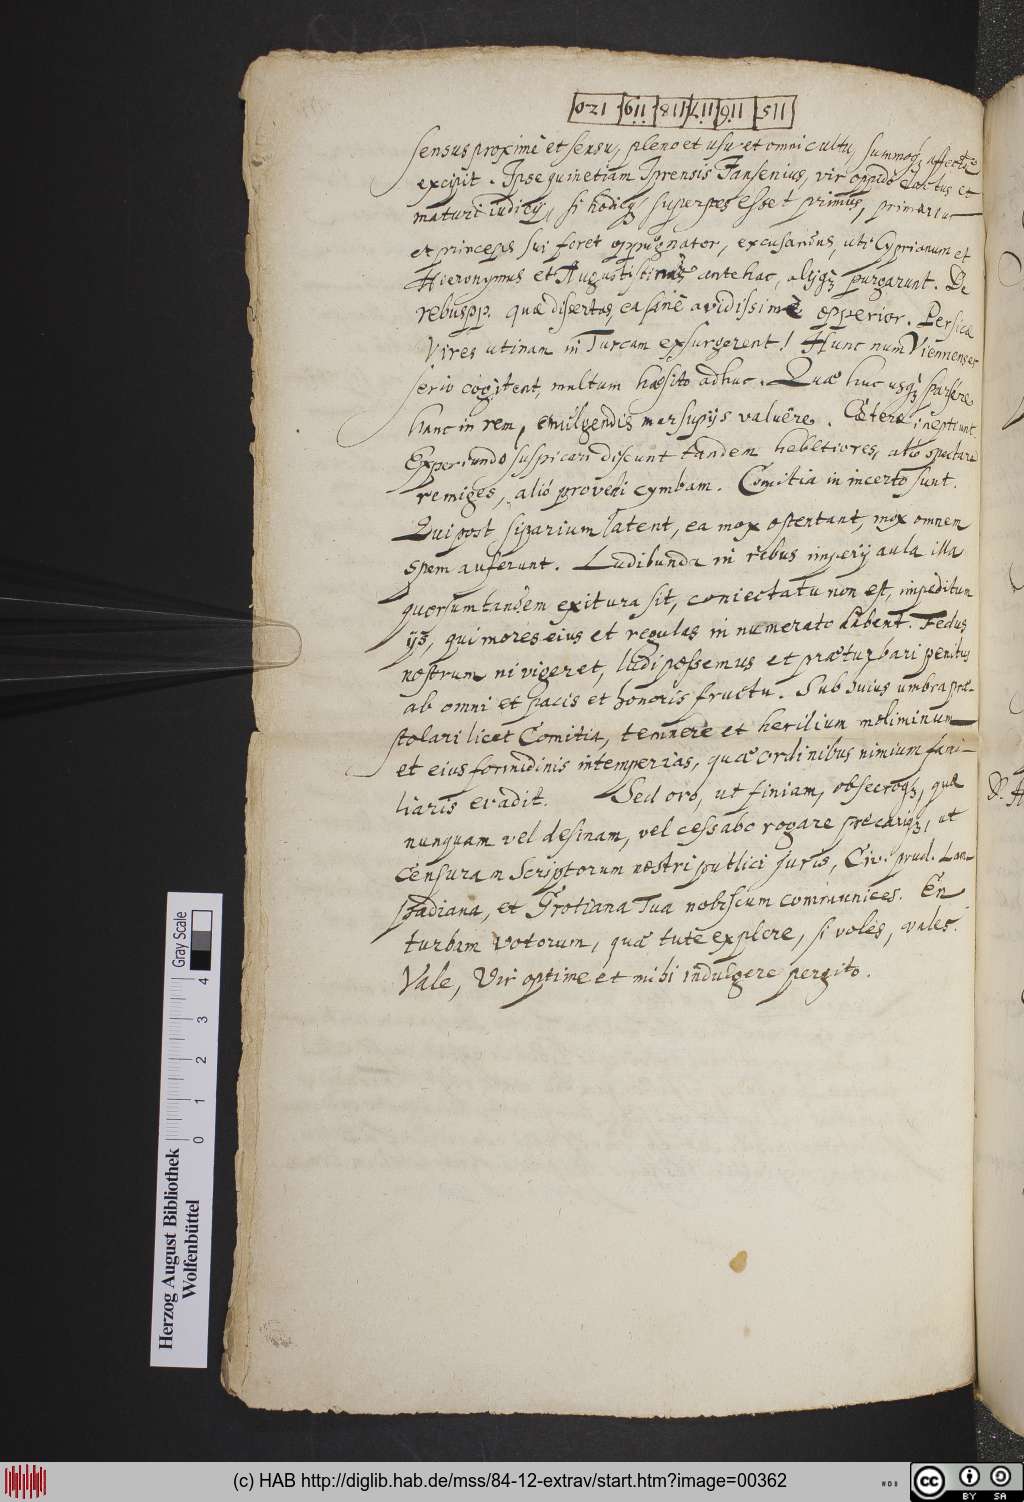 120 119 118 117 116 115
sensus proximè et sensu, pleno et usu et omni cultu, summoq₃ affectu
excipit. Ipse quinetiam Iprensis Jansenius, vir oppidò doctus et
maturi iudicij, si hodieq₃ superstes esset primus, primarius
et princeps sui foret oppugnator, excusandus, uti Cyprianum et
Hieronymus et Augustinus antehac, alijq₃ purgarunt. De
rebus pp. quæ disertas, ea sanè avidissimè opperior. Persicæ
Vires utinam in Turcam exsurgerent! Hunc num Viennenses
serio cogitent, multum hæsito adhuc. Quæ huc usq₃ sparsere
hanc in rem, emulgendis marsupijs valuere. Cætera ineptiunt.
Experiundo suspicari discunt tandem hebetiores, aliò spectare
remiges, aliò provehi cymbam. Comitia in incerto sunt.
Qui post siparium latent, ea mox ostentant, mox omnem
spem auferunt. Ludibunda in rebus imperij aula illa
quorsum tandem exitura sit, coniectatu non est impeditum
ijs, qui mores eius et regulas in numerato habent. Fedus
nostrum ni vigeret, ludi possemus et præturbari penitus
ab omni et pacis et honoris fructu. Sub huius umbra præ-
stolari licet Comitia, temnere et herilium moliminum
et eius formidinis intemperias, quæ ordinibus nimium fami-
liaris evadit. Sed oro, ut finiam, obsecroq₃, quæ
nunquam vel desinam, vel cessabo rogare precariq₃, ut
censuram Scriptorum nostri publici Juris, Civ. prud. Lam-
padiana, et Grotiana Tua nobiscum communices. En
turbam votorum, quæ tute explere, si voles, vales.
Vale, Vir optime et mihi indulgere pergito.
Herzog August Bibliothek
Wolfenbüttel
0 1 2 3 4
Gray Scale
(c) HAB http://diglib.hab.de/mss/84-12-extrav/start.htm?image=00362
cc BY SA